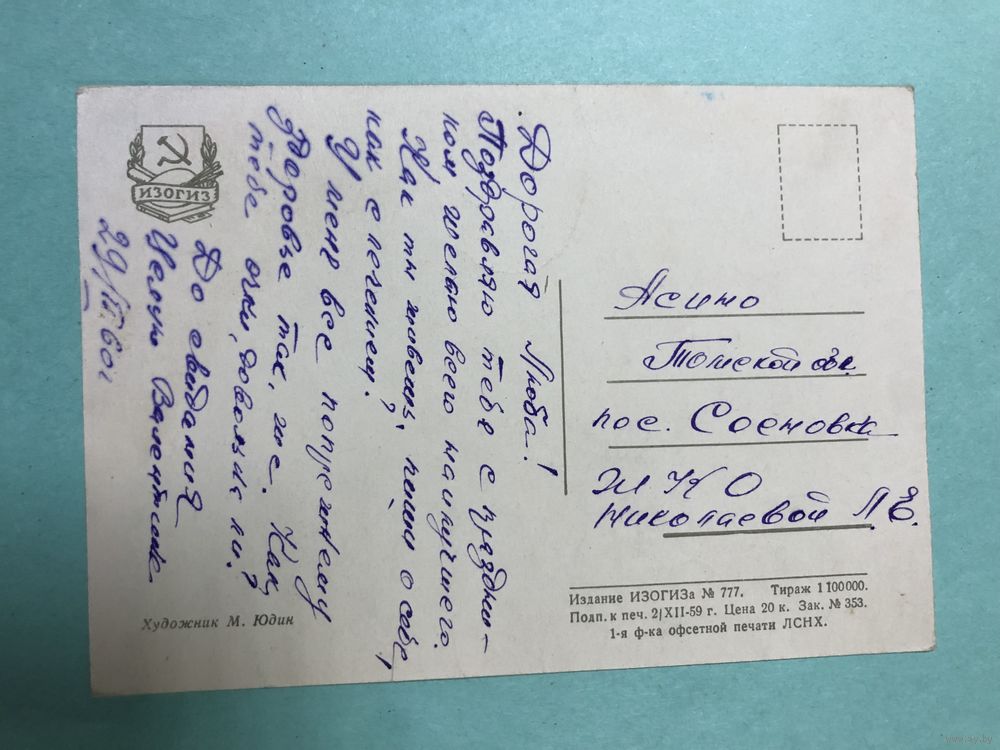 ИЗОГИЗ
Дорогая Люба!
Поздравляю тебя с праздни-
ком желаю всего наилучшего.
Как ты живешь, пиши о себе,
как с лечением?
У меня все попрежнему
здоровье так же. Как
тебе очки, довольна ли?
До свидания
Целую Валентина
29/IV 60г
Художник М. Юдин
Асино
Томской обл.
пос. Сосновка
ЖКО
Николаевой Л.Е.
Издание ИЗОГИЗа № 777. Тираж 1 100 000.
Подп. к печ. 2/XII-59 г. Цена 20 к. Зак. № 353.
1-я ф-ка офсетной печати ЛСНХ.